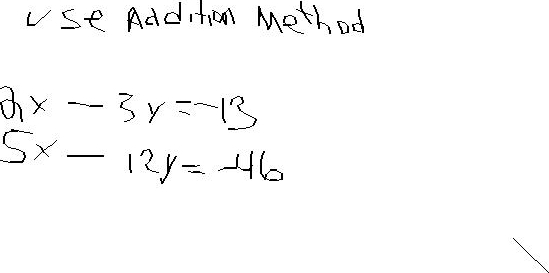 use Addition Method
2x - 3y = -13
5x - 12y = -46